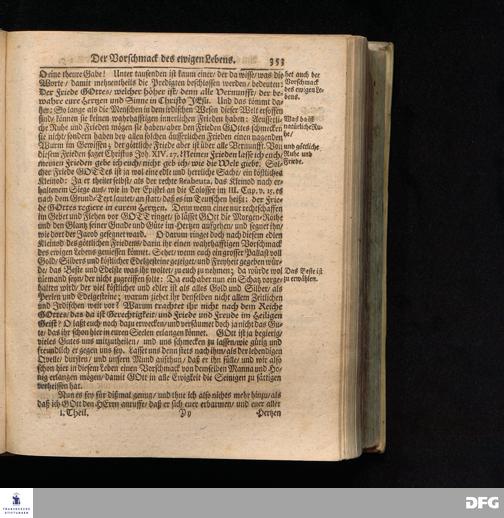 Der Vorschmack des ewigen Lebens. 353
O eine theure Gabe! Unter tausenden ist kaum einer/ der da wisse/ was die
Worte/ damit mehrentheils die Predigten beschlossen werden/ bedeuten:
Der Friede GOttes/ welcher höher ist/ denn alle Vernunfft/ der be-
wahre eure Hertzen und Sinne in Christo JEsu. Und das kömmt da-
her: So lange als die Menschen in dem irdischen Wesen dieser Welt ersoffen
sind/ können sie keinen wahrhafftigen innerlichen Frieden haben: Aeusserli-
che Ruhe und Frieden mögen sie haben/ aber den Frieden GOttes schmecken
sie nicht/ sondern haben bey allen ihren äusserlichen Frieden einen nagenden
Wurm im Gewissen; der göttliche Friede aber ist über alle Vernunfft. Von
diesem Frieden saget Christus Joh. XIV. 27. Meinen Frieden lasse ich euch/
meinen Frieden gebe ich euch/ nicht geb ich/ wie die Welt giebt. Sol-
cher Friede GOTTes ist ja wol eine edle und herrliche Sache/ ein köstliches
Kleinod: Ja er theilet selbst/ als der rechte Brabeuta, das Kleinod nach er-
haltenem Siege aus/ wie in der Epistel an die Colosser im III. Cap. v. 15. es
nach dem Grund-Text lautet/ an statt/ daß es im Teutschen heißt: der Frie-
de GOttes regiere in eurem Hertzen. Denn wenn einer nur rechtschaffen
im Gebet und Flehen vor GOTT ringet/ so lässet GOtt die Morgen-Röthe
und den Glantz seiner Gnade und Güte im Hertzen aufgehen/ und segnet ihn/
wie dort der Jacob gesegnet ward. O darum ringet doch nach diesem edlen
Kleinod des göttlichen Friedens/ darin ihr einen wahrhafftigen Vorschmack
des ewigen Lebens geniessen könnet. Sehet/ wenn euch ein grosser Pallast voll
Gold/ Silbers und köstlicher Edelgesteine gezeiget/ und Freyheit gegeben wür-
de/ das Beste und Edelste was ihr woltet/ zu euch zu nehmen; da würde wol
niemand seyn/ der nicht zugreiffen solte: Da euch aber nun ein Schatz vorge-
halten wird/ der viel köstlicher und edler ist als alles Gold und Silber/ als
Perlen und Edelgesteine; warum ziehet ihr denselben nicht allem Zeitlichen
und Irdischen weit vor? Warum trachtet ihr nicht nach dem Reiche
GOttes/ das da ist Gerechtigkeit/ und Friede und Freude im Heiligen
Geist? O laßt euch noch dazu erwecken/ und versäumet doch ja nicht das Gu-
te/ das ihr schon hier in euren Seelen erlangen könnet. GOtt ist ja begierig/
vieles Gutes uns mitzutheilen/ und uns schmecken zu lassen/ wie gütig und
freundlich er gegen uns sey. Lasset uns denn stets nach ihm/ als der lebendigen
Quelle/ dürsten/ und unsern Mund aufthun/ daß er ihn fülle/ und wir also
schon hier in diesem Leben einen Vorschmack von demselben Manna und Ho-
nig erlangen mögen/ damit GOtt in alle Ewigkeit die Seinigen zu sättigen
verheissen hat.
Nun es sey für dißmal genug/ und thue ich also nichts mehr hinzu/ als
daß ich GOtt den HErrn anruffe/ daß er sich euer erbarmen/ und euer aller
1. Theil. Yy Hertzen
het auch der
Vorschmack
des ewigen Le-
bens.
Was da ist
natürliche Ru-
he/
und göttliche
Ruhe und
Friede.
Das Beste ist
zu erwählen.
FRANCKESCHE
STIFTUNGEN
DFG